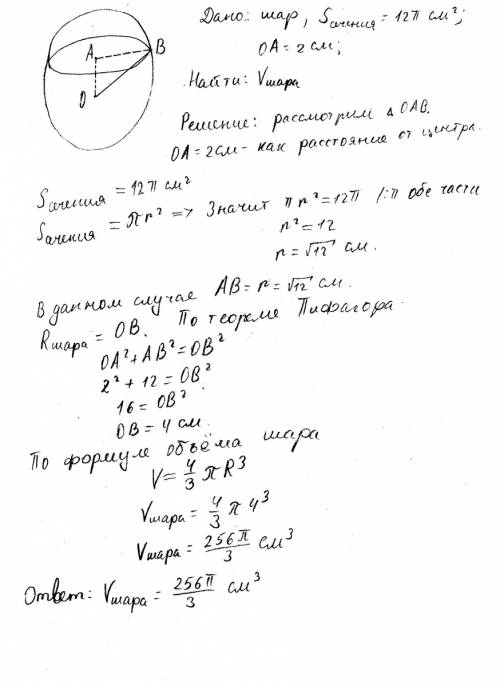 A
B
O
Дано: шар, Sсечения = 12π см²;
OA = 2 см;
Найти: Vшара
Решение: рассмотрим Δ OAB.
OA = 2см - как расстояние от центра.
Sсечения = 12π см²
Sсечения = πr² => Значит πr² = 12π /:π обе части
r² = 12
r = √12 см.
В данном случае AB = r = √12 см.
Rшара = OB. По теореме Пифагора
OA² + AB² = OB²
2² + 12 = OB²
16 = OB²
OB = 4 см.
По формуле объёма шара
V = 4/3 πR³
Vшара = 4/3 π 4³
Vшара = 256π/3 см³
Ответ: Vшара = 256π/3 см³